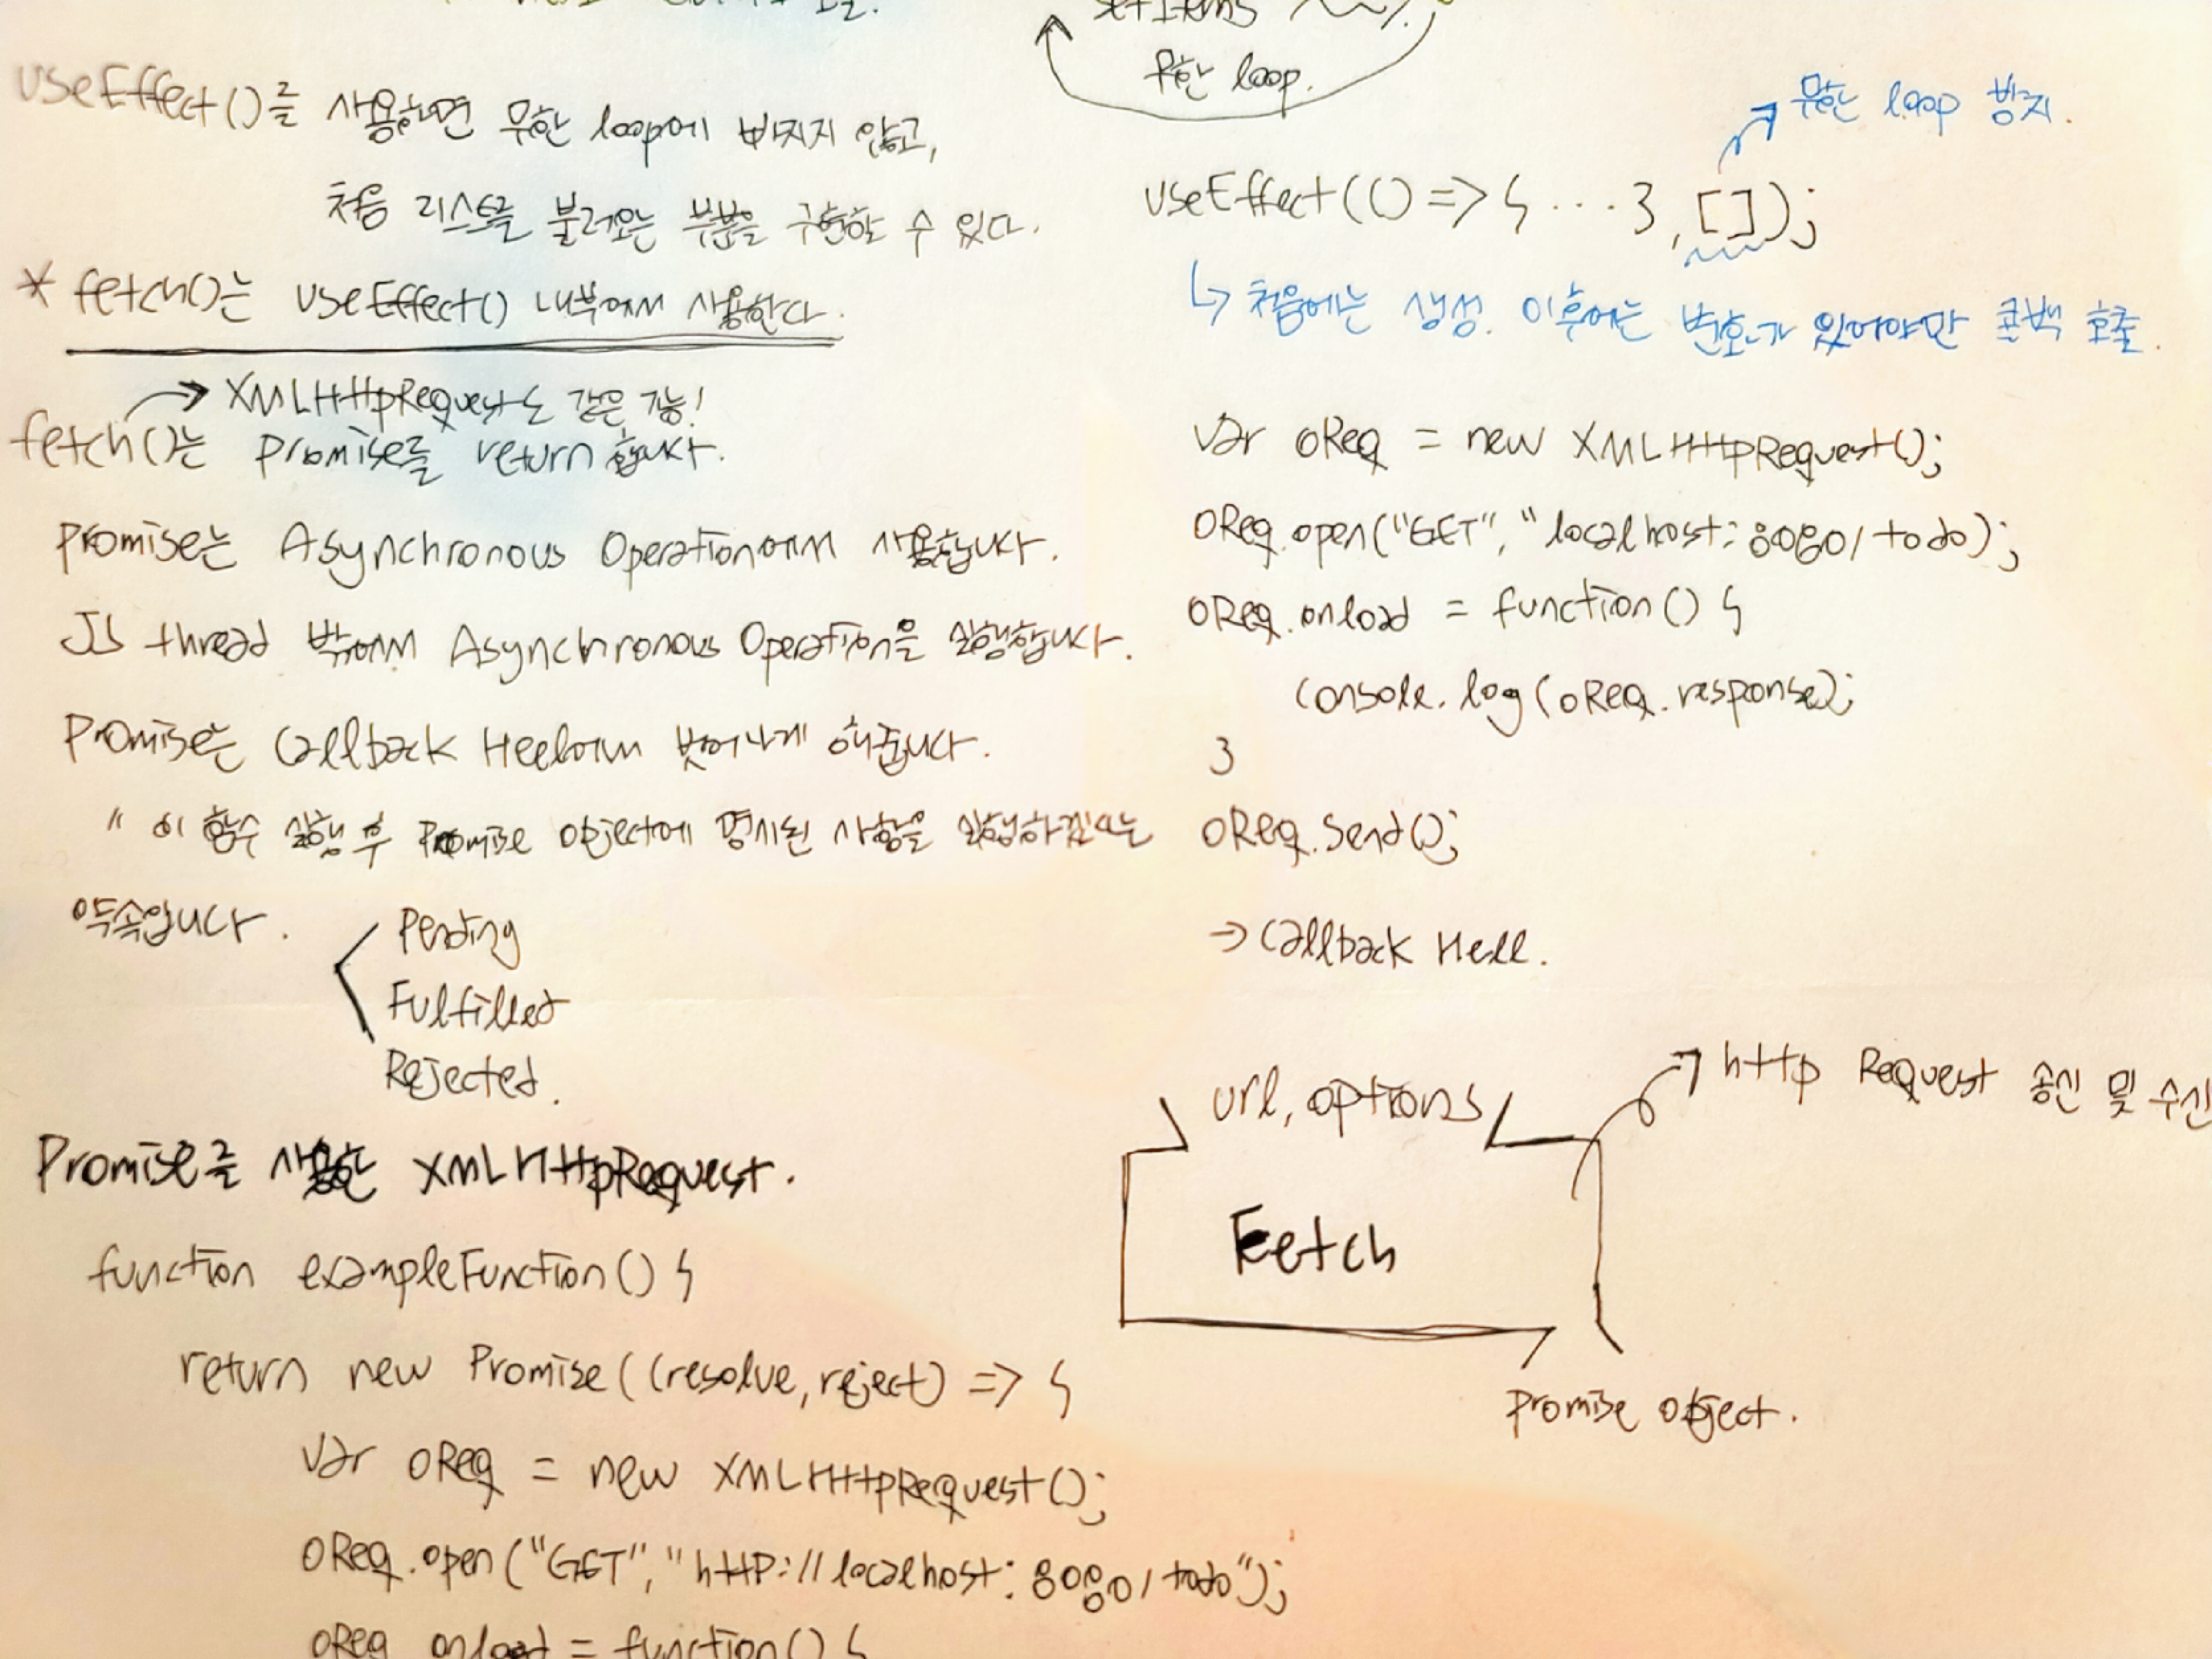 useEffect()를 사용하면 무한 loop에 빠지지 않고,
처음 리스트를 불러오는 부분을 구현할 수 있다.
* fetch()는 useEffect() 내부에서 사용한다.
→ XMLHttpRequest도 같은 기능!
fetch()는 promise를 return 합니다.
promise는 Asynchronous Operation에서 사용합니다.
JS thread 밖에서 Asynchronous Operation을 실행합니다.
Promise는 Callback Hell에서 벗어나게 해줍니다.
" 이 함수 실행 후 Promise object에 명시된 사항을 실행하겠다는
약속입니다.
Pending
Fulfilled
Rejected.
Promise를 사용한 XMLHttpRequest.
function exampleFunction() {
return new Promise((resolve, reject) => {
var oReq = new XMLHttpRequest();
oReq.open("GET", "http://localhost:8080/todo");
oReq.onload = function() {
setItems
무한 loop.
무한 loop 방지.
useEffect(() => { ... }, []);
↳ 처음에는 생성. 이후에는 변화가 있어야만 콜백 호출.
var oReq = new XMLHttpRequest();
oReq.open("GET", "localhost:8080/todo);
oReq.onload = function() {
console.log(oReq.response);
}
oReq.send();
→ Callback Hell.
url, options
http Request 송신 및 수신
Fetch
promise object.